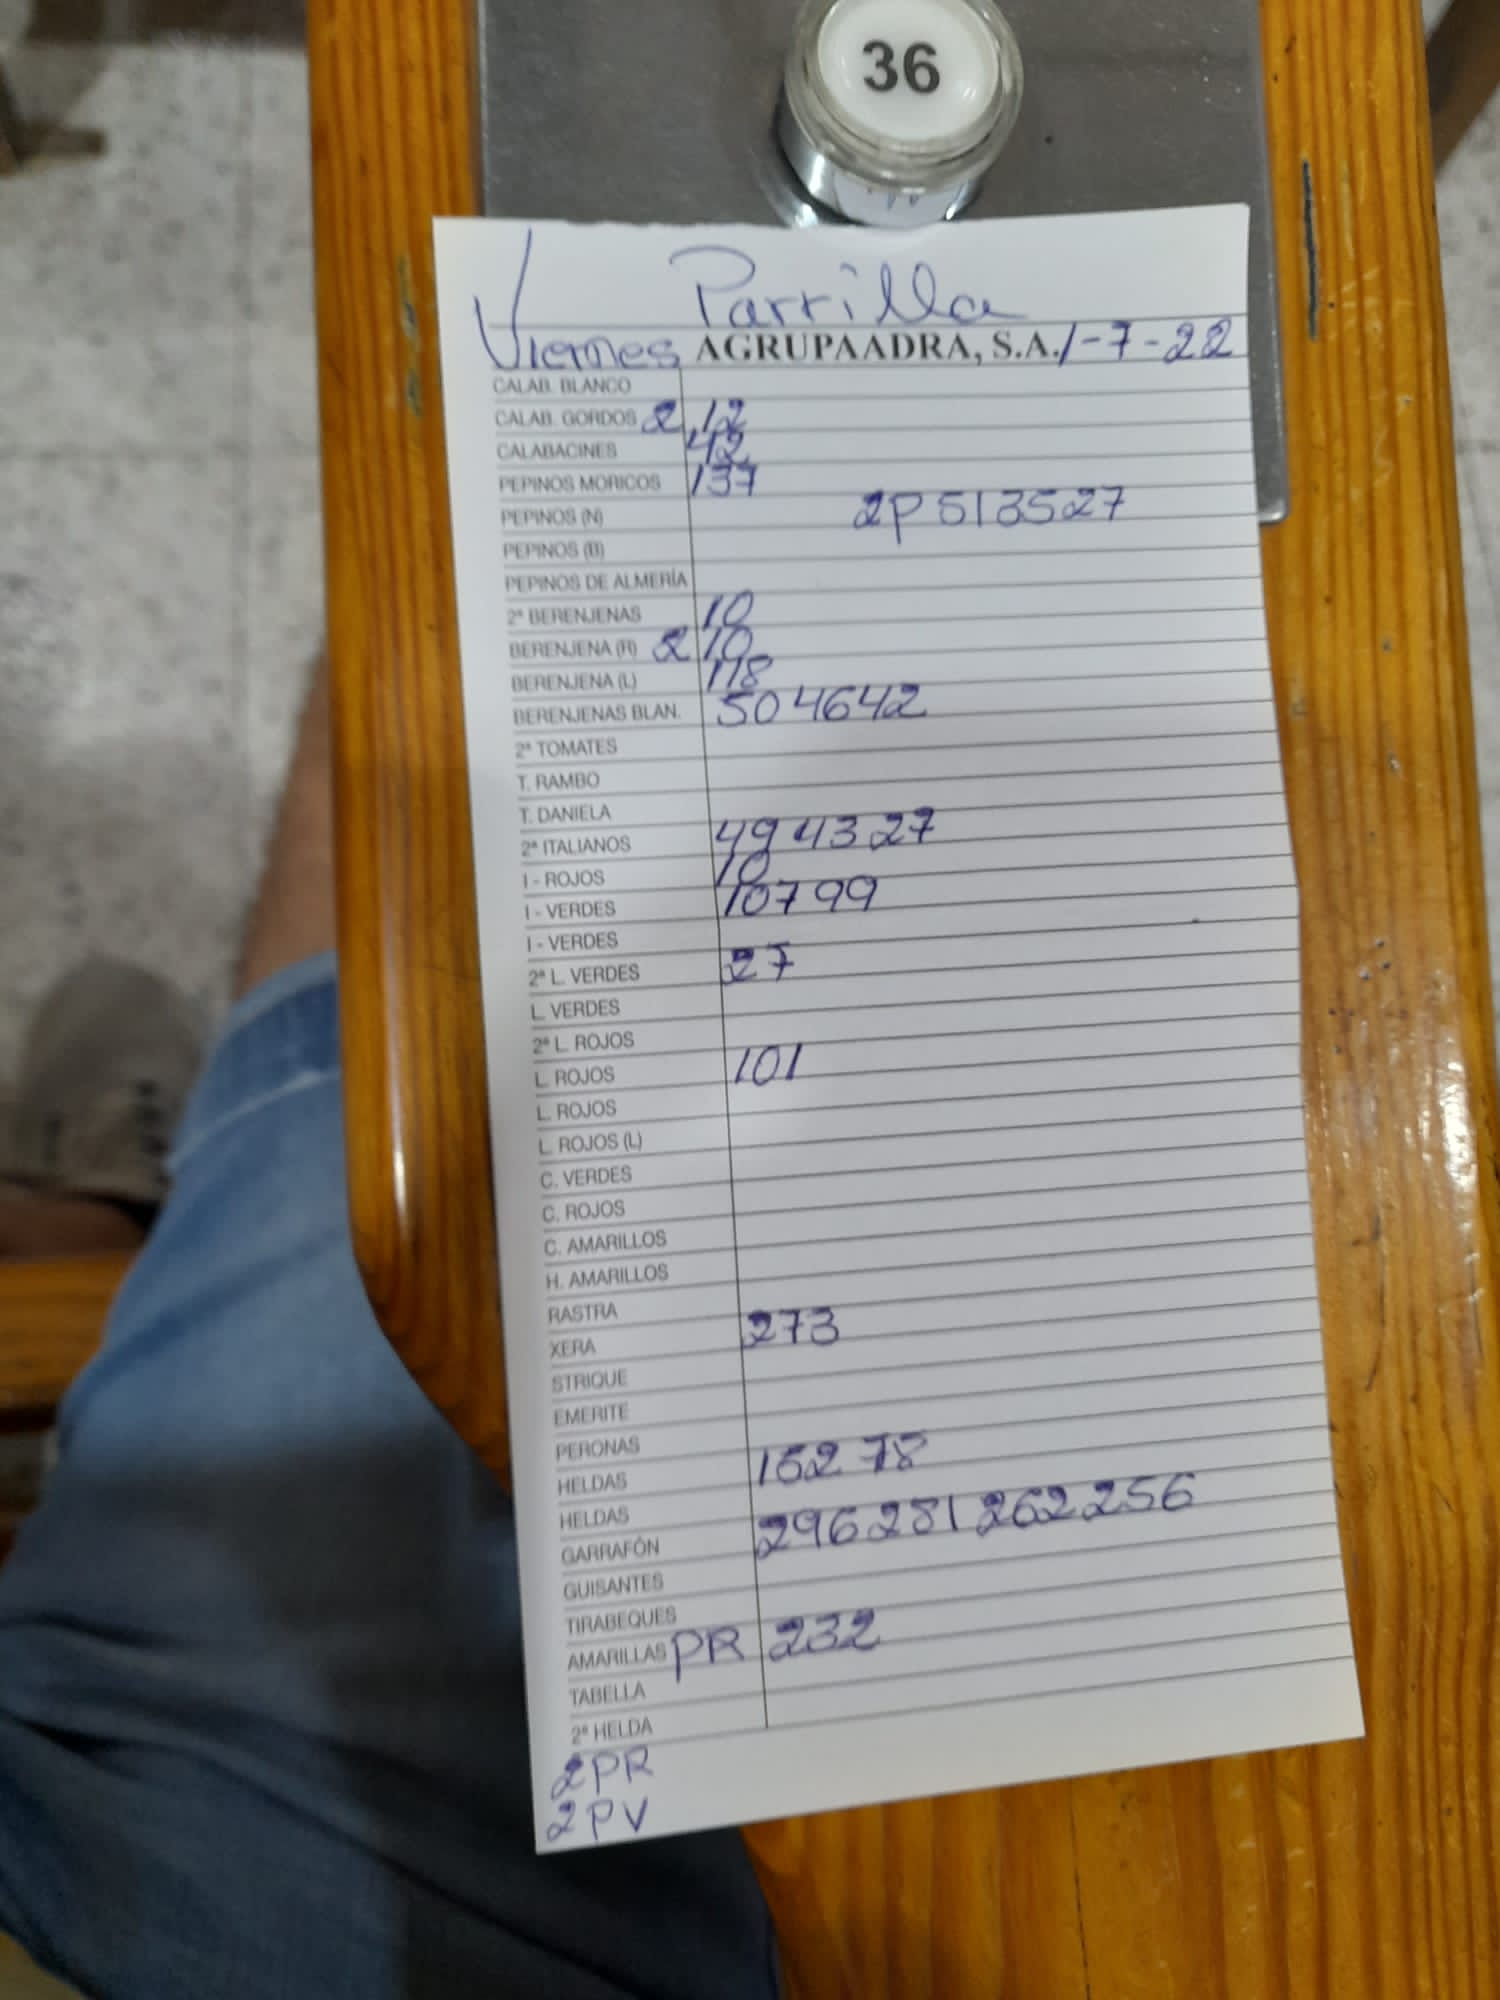 36
Parrilla
Viernes AGRUPAADRA, S.A. 1-7-22
CALAB. BLANCO
CALAB. GORDOS 2 12
CALABACINES 42
PEPINOS MORICOS 137
PEPINOS (N) 2P 51 35 27
PEPINOS (B)
PEPINOS DE ALMERÍA
2ª BERENJENAS 10
BERENJENA (R) 2 10
BERENJENA (L) 118
BERENJENAS BLAN. 50 46 42
2ª TOMATES
T. RAMBO
T. DANIELA
2ª ITALIANOS 49 43 27
I - ROJOS 10
I - VERDES 107 99
I - VERDES
2ª L. VERDES 27
L. VERDES
2ª L. ROJOS
L. ROJOS 101
L. ROJOS
L. ROJOS (L)
C. VERDES
C. ROJOS
C. AMARILLOS
H. AMARILLOS
RASTRA
XERA 273
STRIQUE
EMERITE
PERONAS
HELDAS 152 78
HELDAS
GARRAFÓN 296 281 262 256
GUISANTES
TIRABEQUES
AMARILLAS PR 232
TABELLA
2ª HELDA
2PR
2PV